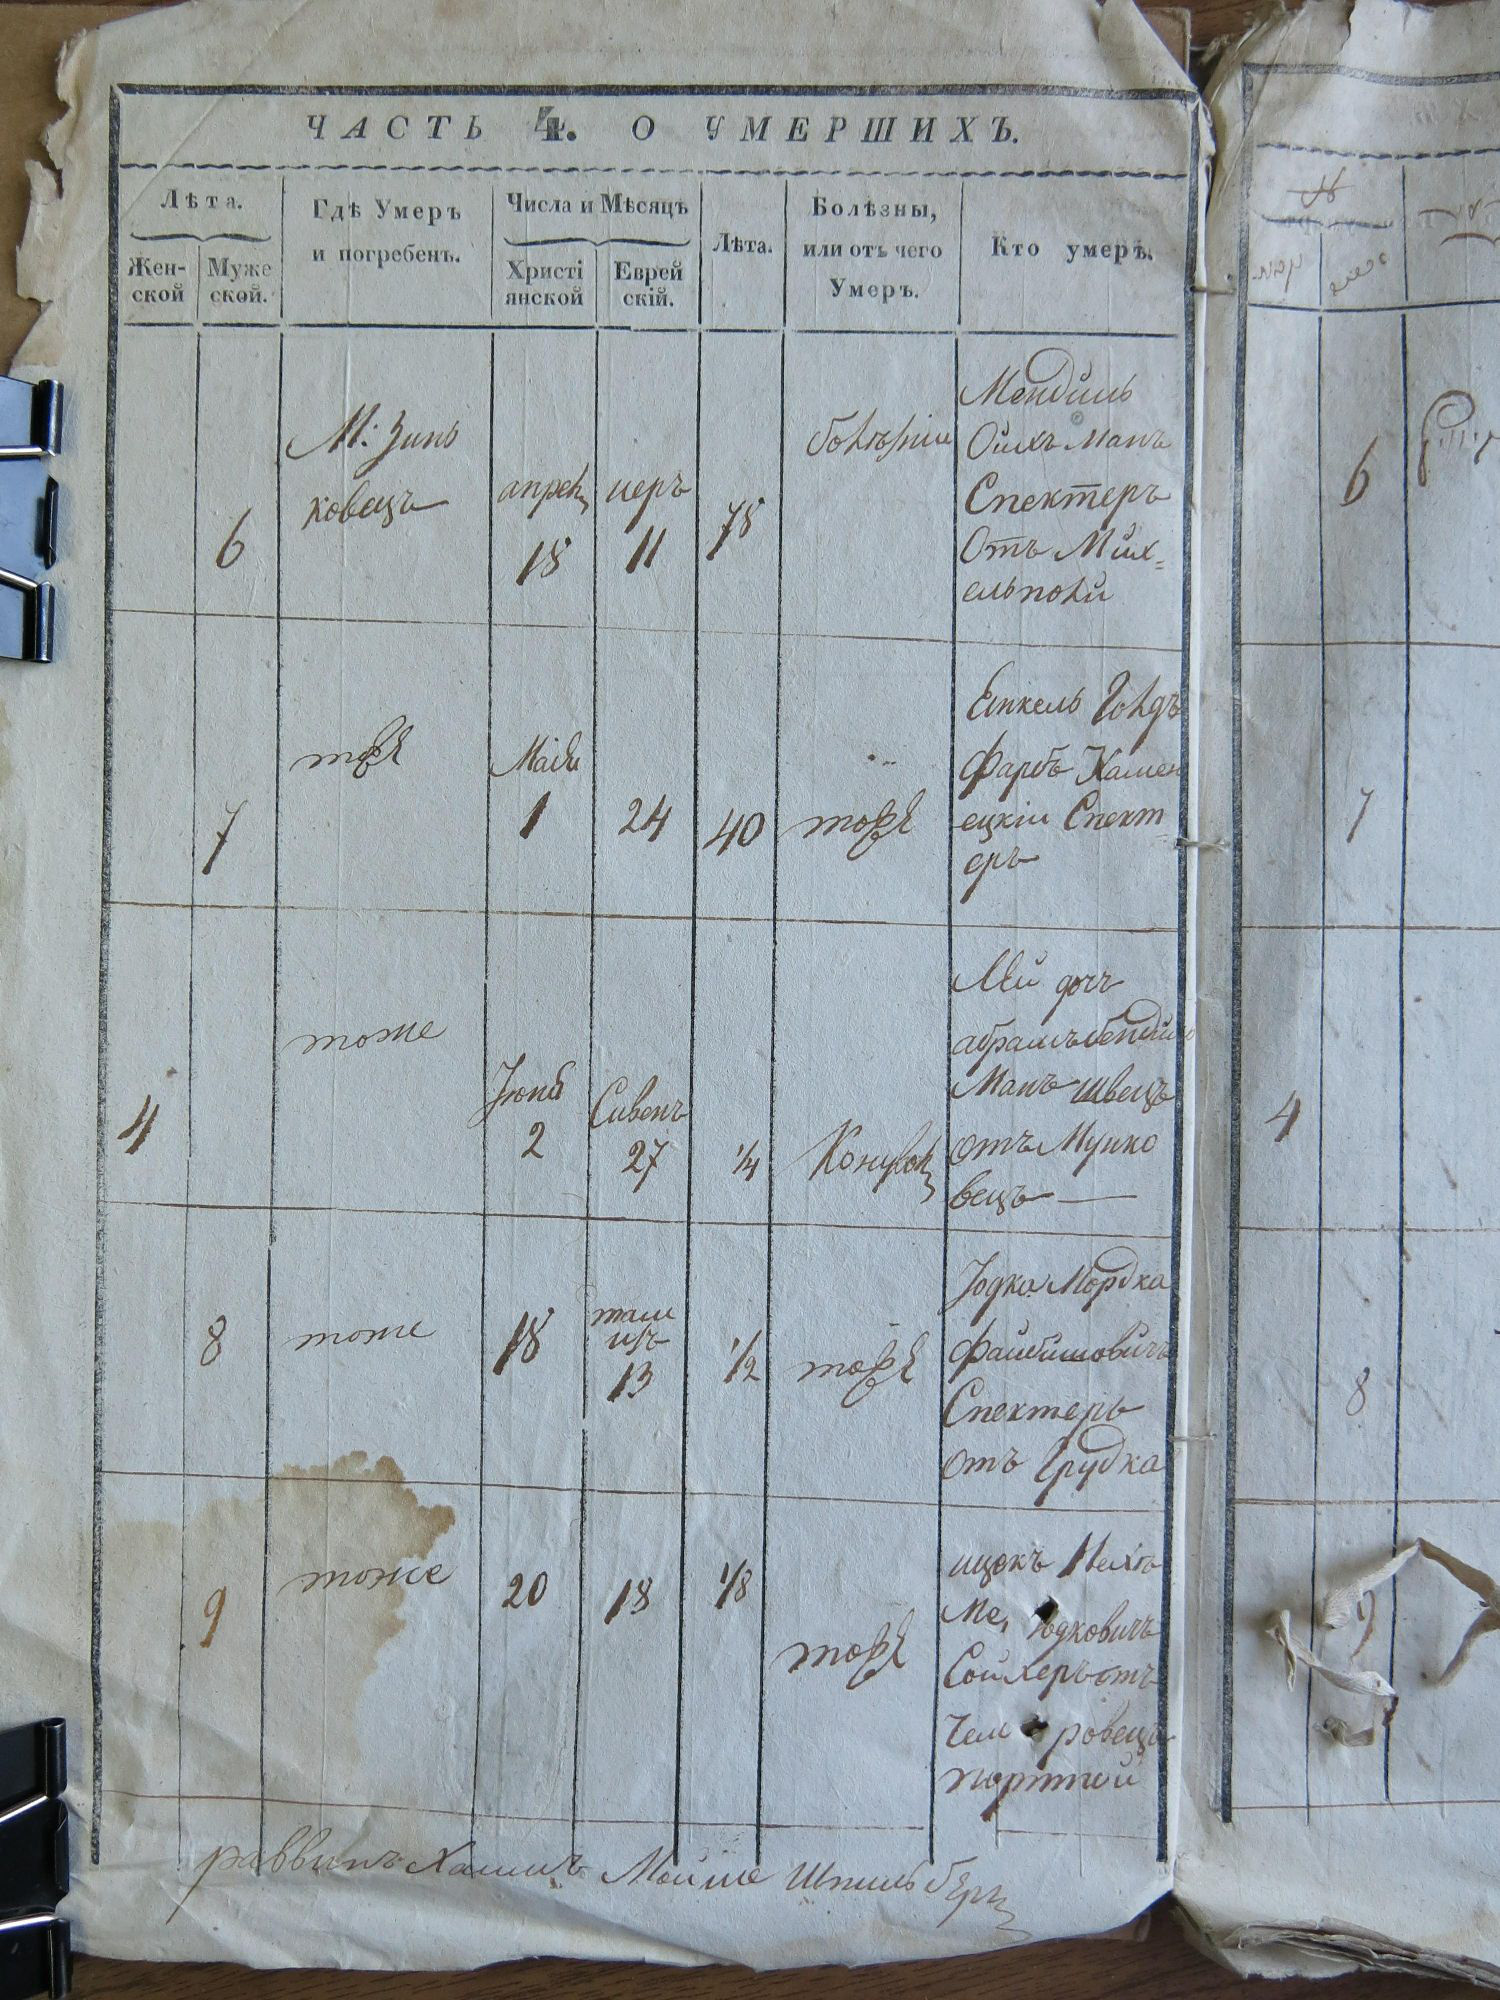 ЧАСТЬ 4. О УМЕРШИХЪ.
Лѣта.
Жен-
ской
Муже
ской.
Гдѣ Умеръ
и погребенъ.
Числа и Мѣсяцъ
Христі
янской
Еврей
скій.
Лѣта.
Болѣзны,
или отъ чего
Умеръ.
Кто умеръ.
6
М: Зинь
ковецъ
апрел
18
иеръ
11
78
Мендиль
Спектеръ
Отъ Мих=
7
тоже
Маія
1
24
40
тоже
Еинкель Голдъ
Фарбъ Камен
ецкій Спект
еръ
4
тоже
Іюнь
2
Сивенъ
27
1/4
дочъ
Манъ швецъ
отъ Мунко
вецъ
8
тоже
18
там
изъ
13
1/2
тоже
Іодка Мордка
Файбишовичъ
Спектеръ
отъ Грудка
9
тоже
20
18
1/8
тоже
ицокъ Нехе
Ме, Іодковичъ
Сойхеръ отъ
Чем ровецъ
портной
раввинъ Хаимъ Мойше Шпильберг
4
6
7
8
9